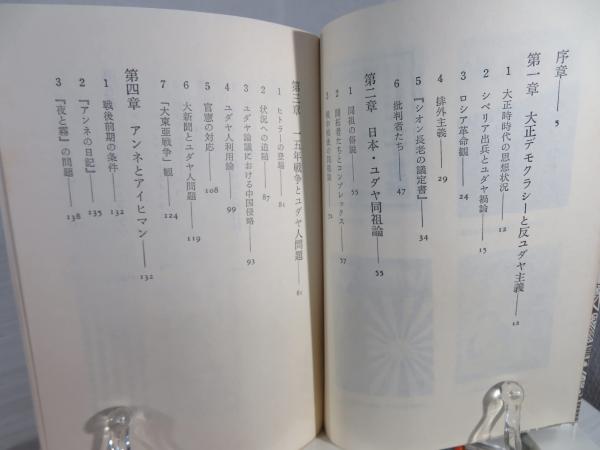 序章——5
第一章 大正デモクラシーと反ユダヤ主義——12
1 大正時代の思想状況 12
2 シベリア出兵とユダヤ禍論 15
3 ロシア革命観 24
4 排外主義 29
5 『シオン長老の議定書』 34
6 批判者たち 47
第二章 日本・ユダヤ同祖論——55
1 同祖の俗説 55
2 開拓者たちとコンプレックス 57
3 の同祖論 71
第三章 一五年戦争とユダヤ人問題——81
1 ヒトラーの登場 81
2 状況への追随 87
3 ユダヤ論議における中国侵略 93
4 ユダヤ人利用論 99
5 官憲の対応 108
6 大新聞とユダヤ人問題 119
7 「大東亜戦争」観 124
第四章 アンネとアイヒマン——132
1 戦後前期の条件 132
2 『アンネの日記』 135
3 『夜と霧』の問題 138